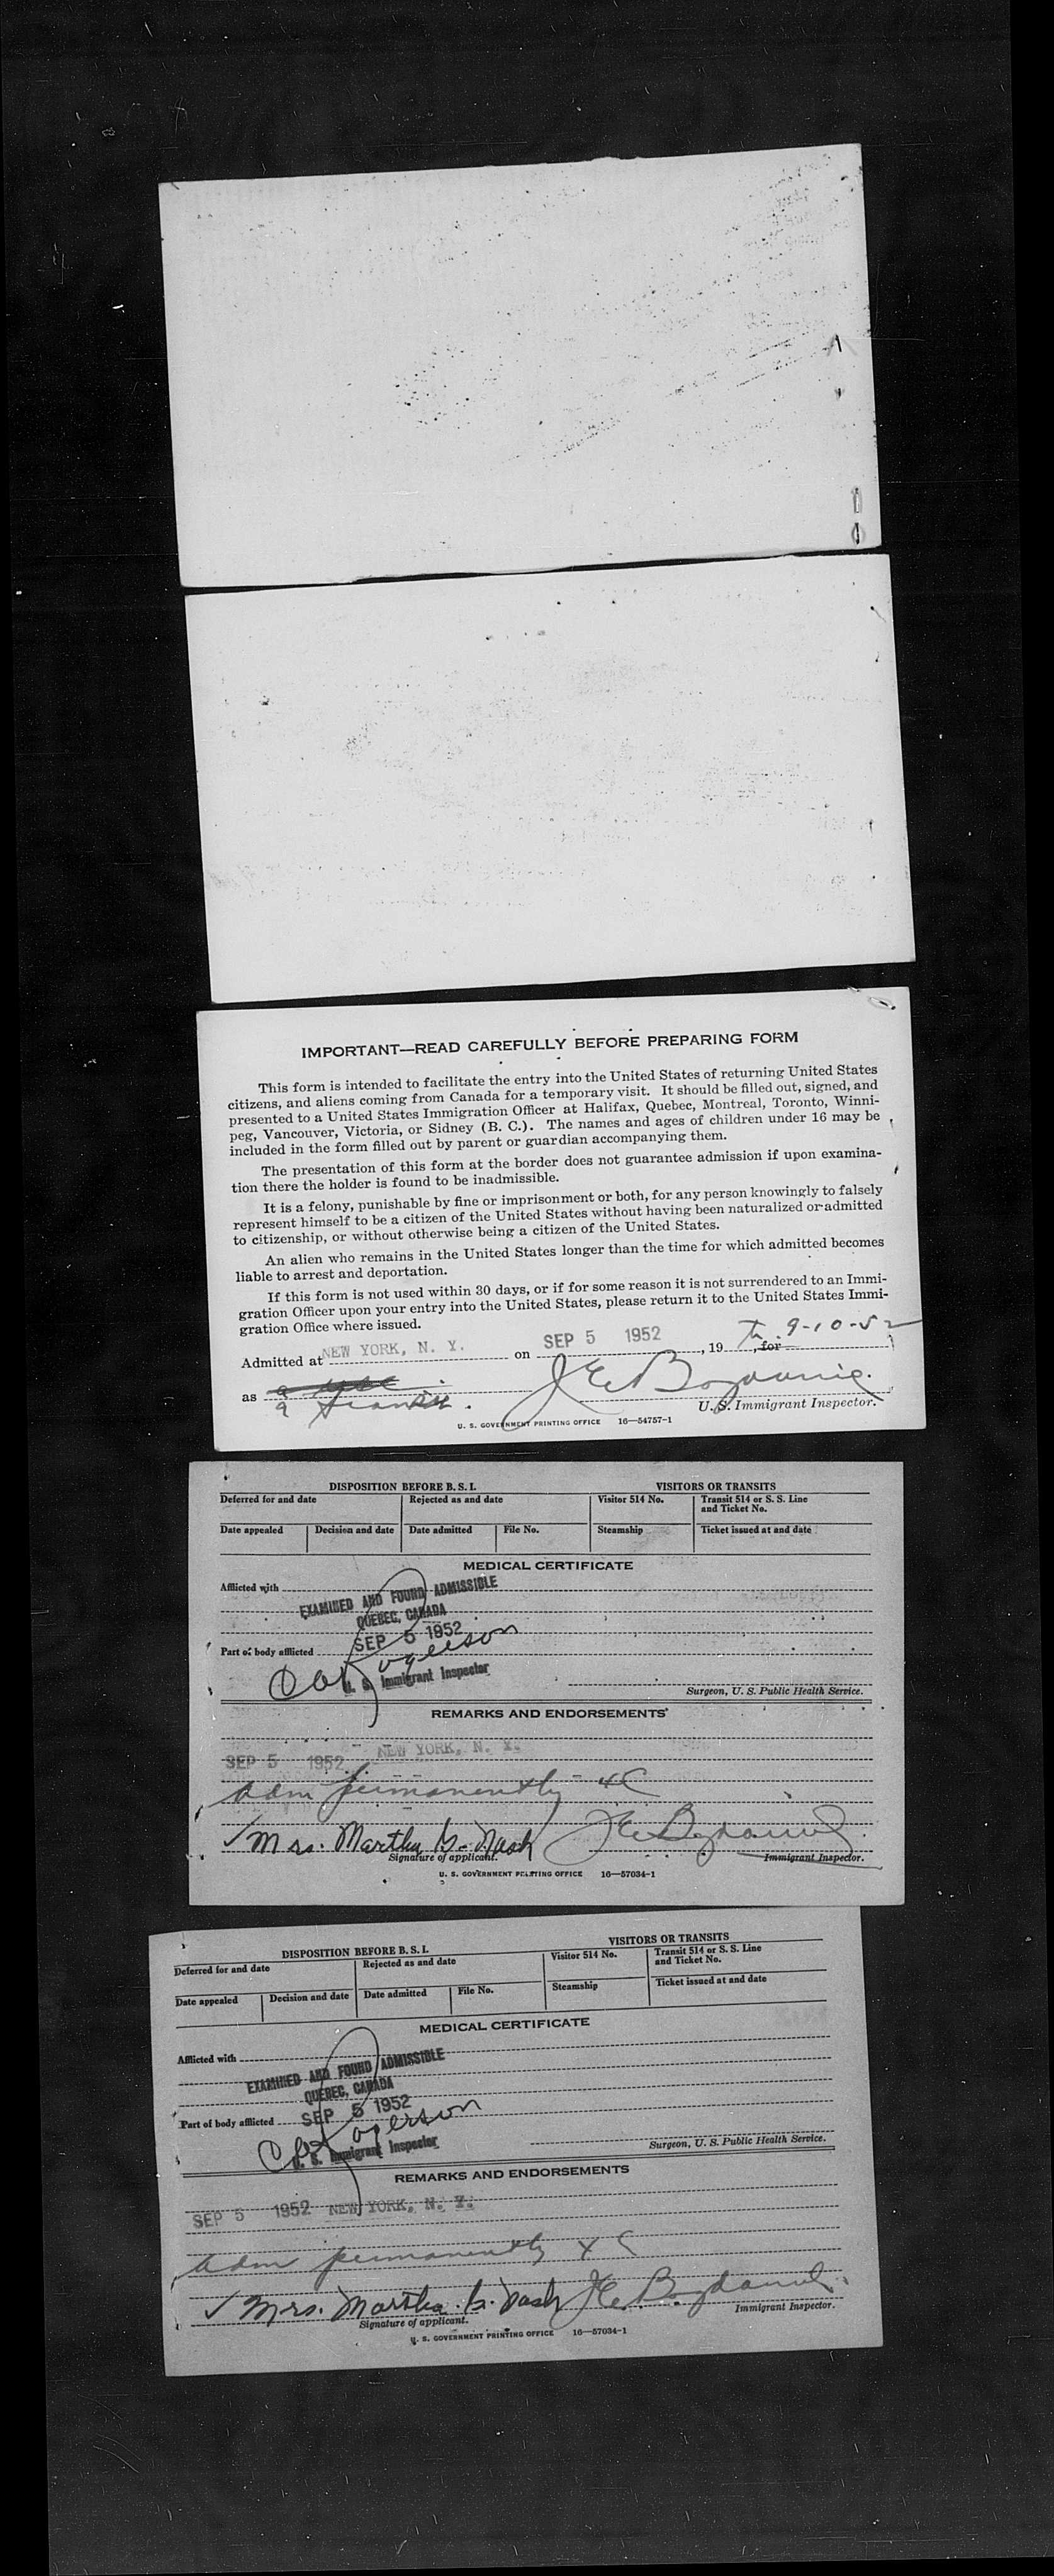 IMPORTANT—READ CAREFULLY BEFORE PREPARING FORM
This form is intended to facilitate the entry into the United States of returning United States
citizens, and aliens coming from Canada for a temporary visit. It should be filled out, signed, and
presented to a United States Immigration Officer at Halifax, Quebec, Montreal, Toronto, Winni-
peg, Vancouver, Victoria, or Sidney (B. C.). The names and ages of children under 16 may be
included in the form filled out by parent or guardian accompanying them.
The presentation of this form at the border does not guarantee admission if upon examina-
tion there the holder is found to be inadmissible.
It is a felony, punishable by fine or imprisonment or both, for any person knowingly to falsely
represent himself to be a citizen of the United States without having been naturalized or admitted
to citizenship, or without otherwise being a citizen of the United States.
An alien who remains in the United States longer than the time for which admitted becomes
liable to arrest and deportation.
If this form is not used within 30 days, or if for some reason it is not surrendered to an Immi-
gration Officer upon your entry into the United States, please return it to the United States Immi-
gration Office where issued.
Admitted at NEW YORK, N. Y. on SEP 5 1952, 19 , for 9-10-52
as a
U. S. Immigrant Inspector.
U. S. GOVERNMENT PRINTING OFFICE 16—54757-1
DISPOSITION BEFORE B. S. I. VISITORS OR TRANSITS
Deferred for and date Rejected as and date Visitor 514 No. Transit 514 or S. S. Line
and Ticket No.
Date appealed Decision and date Date admitted File No. Steamship Ticket issued at and date
MEDICAL CERTIFICATE
Afflicted with
EXAMINED AND FOUND ADMISSIBLE
QUEBEC, CANADA
SEP 5 1952
Part of body afflicted
U. S. Immigrant Inspector
Surgeon, U. S. Public Health Service.
REMARKS AND ENDORSEMENTS
SEP 5 1952 NEW YORK, N. Y.
adm permanently 4C
Mrs. Martha G. Nash
Signature of applicant. Immigrant Inspector.
U. S. GOVERNMENT PRINTING OFFICE 16—57034-1
DISPOSITION BEFORE B. S. I. VISITORS OR TRANSITS
Deferred for and date Rejected as and date Visitor 514 No. Transit 514 or S. S. Line
and Ticket No.
Date appealed Decision and date Date admitted File No. Steamship Ticket issued at and date
MEDICAL CERTIFICATE
Afflicted with
EXAMINED AND FOUND ADMISSIBLE
QUEBEC, CANADA
SEP 5 1952
Part of body afflicted
U. S. Immigrant Inspector
Surgeon, U. S. Public Health Service.
REMARKS AND ENDORSEMENTS
SEP 5 1952 NEW YORK, N. Y.
adm permanently 4C
Mrs. Martha G. Nash
Signature of applicant. Immigrant Inspector.
U. S. GOVERNMENT PRINTING OFFICE 16—57034-1